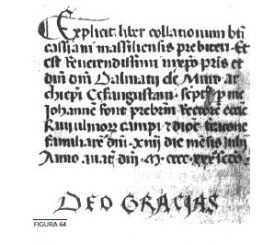 Explicit liber collationum bti
cassiani massiliensis prebiteri Et
est Reverendissimi in xpo pris et
dni dni Dalmatii de Muro ar
chiepi Cesaraugustan. script p me
Johanne font prebrm Rectore eccie
campi dioc
familiare dni xiiii die mensis julii
Anno a nat dni M cccc xxx secdo
DEO GRACIAS
FIGURA 64